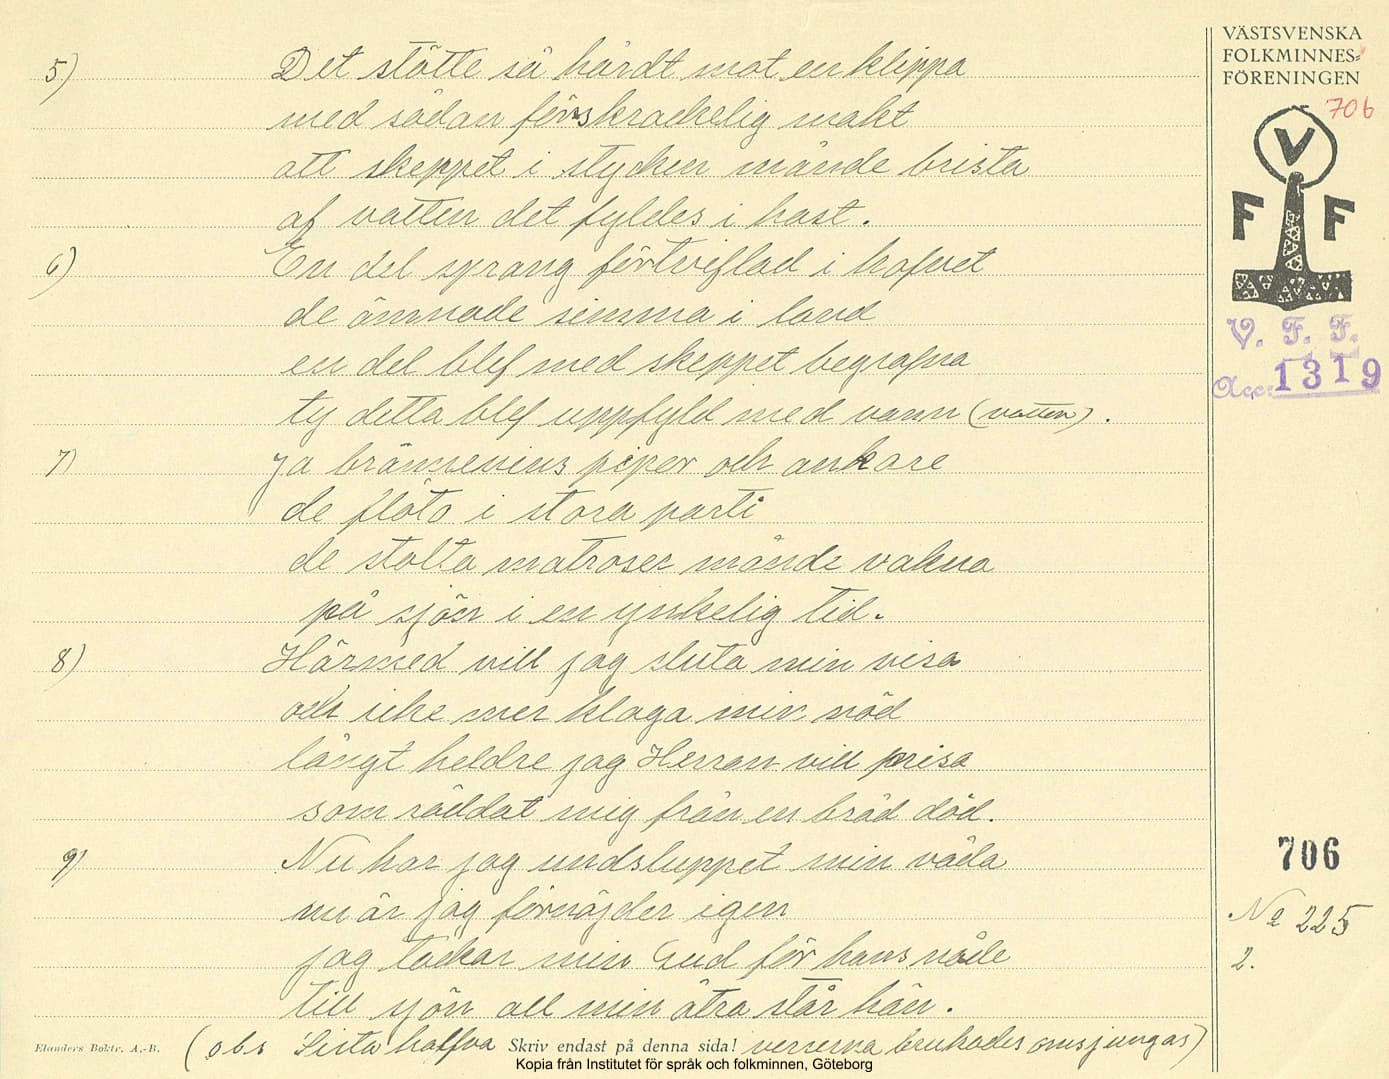 5) Det stötte så hårdt mot en klippa
med sådan förskrackelig makt
att skeppet i stycken månde brista
af vatten det fyldes i hast.
6) En del sprang förtviflad i hafvet
de ämnade simma i land
en del blef med skeppet begrafna
ty detta blef uppfyld med vann (vatten).
7) Ja brännevins piper och ankare
de flöto i stora parti
de stolta matroser månde vakna
på sjön i en ynkelig tid.
8) Härmed vill jag sluta min visa
och icke mer klaga min nöd
långt heldre jag Herran vill prisa
som räddat mig från en bråd död.
9) Nu har jag undsluppet min våda
nu är jag förnöjder igen
jag tackar min Gud för hans nåde
till sjön all min åtra står hän.
(obs Sista halfva verserna brukades omsjungas)
Elanders Boktr. A.-B.
Skriv endast på denna sida!
Kopia från Institutet för språk och folkminnen, Göteborg
VÄSTSVENSKA
FOLKMINNES=
FÖRENINGEN
706
V
F F
V. F. F.
Acc: 1319
706
No 225
2.